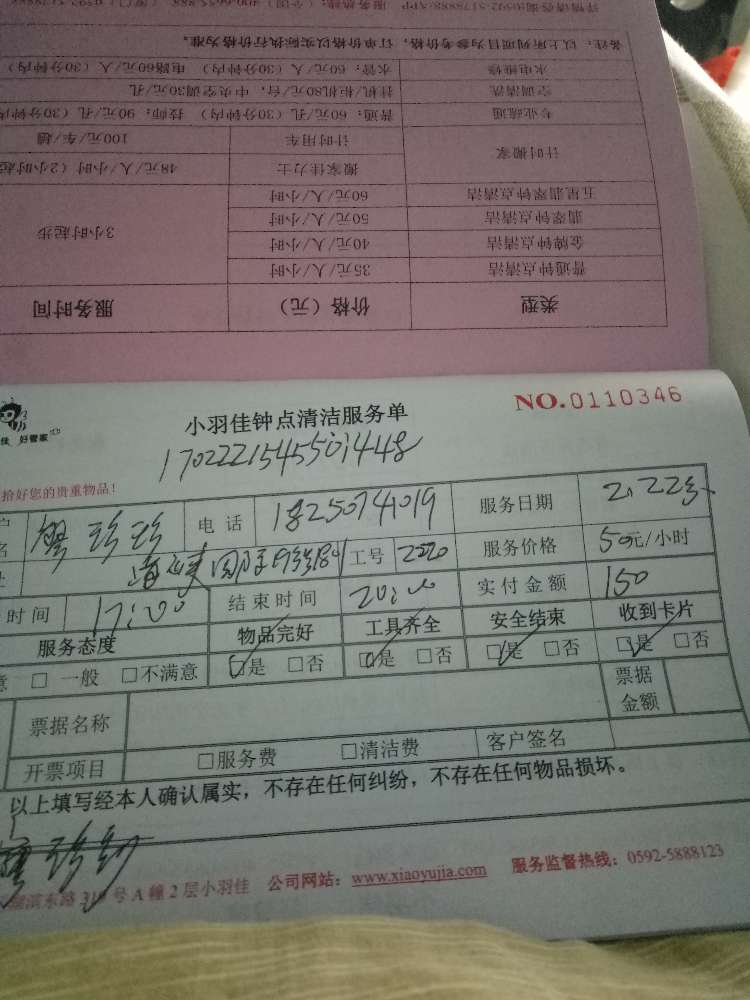 详情请咨询0592-5178888/APP 服务热线:(全国)400-
备注:以上所列项目为参考价格,订单价格以实际执行价格为准。
水电维修 水管:60元/人(30分钟内) 电路60元/人(30分钟内)
空调清洗 挂机/柜机80元/台,中央空调30元/孔
专业疏通 普通:60元/孔(30分钟内) 技师:90元/孔(30分钟内
计时搬家 计时用车 100元/车/趟
搬家佳力士 48元/人/小时(2小时起
五星翡翠钟点清洁 60元/人/小时
翡翠钟点清洁 50元/人/小时 3小时起步
金牌钟点清洁 40元/人/小时
普通钟点清洁 35元/人/小时
类型 价格(元) 服务时间
佳 好管家
小羽佳钟点清洁服务单 NO.0110346
1702221545501448
拾好您的贵重物品!
户名 珍珍 电话 18250741019 服务日期 2.22
址 海峡国际 工号 2220 服务价格 50元/小时
时间 17:00 结束时间 20:00 实付金额 150
服务态度 物品完好 工具齐全 安全结束 收到卡片
意 □ 一般 □不满意 □是 □否 □是 □否 □是 □否 □是 □否
票据名称 票据金额
开票项目 □服务费 □清洁费 客户签名
以上填写经本人确认属实,不存在任何纠纷,不存在任何物品损坏。
湖滨东路319号A幢2层小羽佳 公司网站:www.xiaoyujia.com 服务监督热线:0592-5888123